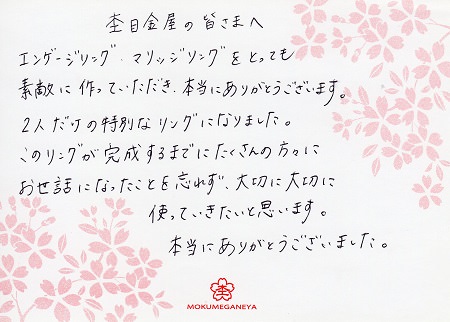 杢目金屋の皆さまへ
エンゲージリング・マリッジリングをとっても
素敵に作っていただき、本当にありがとうございます。
2人だけの特別なリングになりました。
このリングが完成するまでにたくさんの方々に
お世話になったことを忘れず、大切に大切に
使っていきたいと思います。
本当にありがとうございました。
MOKUMEGANEYA